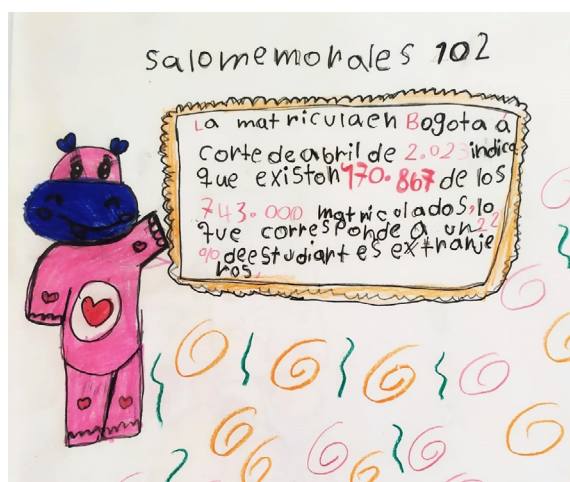 salomemorales 102
La matricula en Bogotá á
corte de abril de 2.023 indica
que existen 170.867 de los
743.000 matricolados, lo
que corresponde a un 22
% de estudiantes extranje
ros.